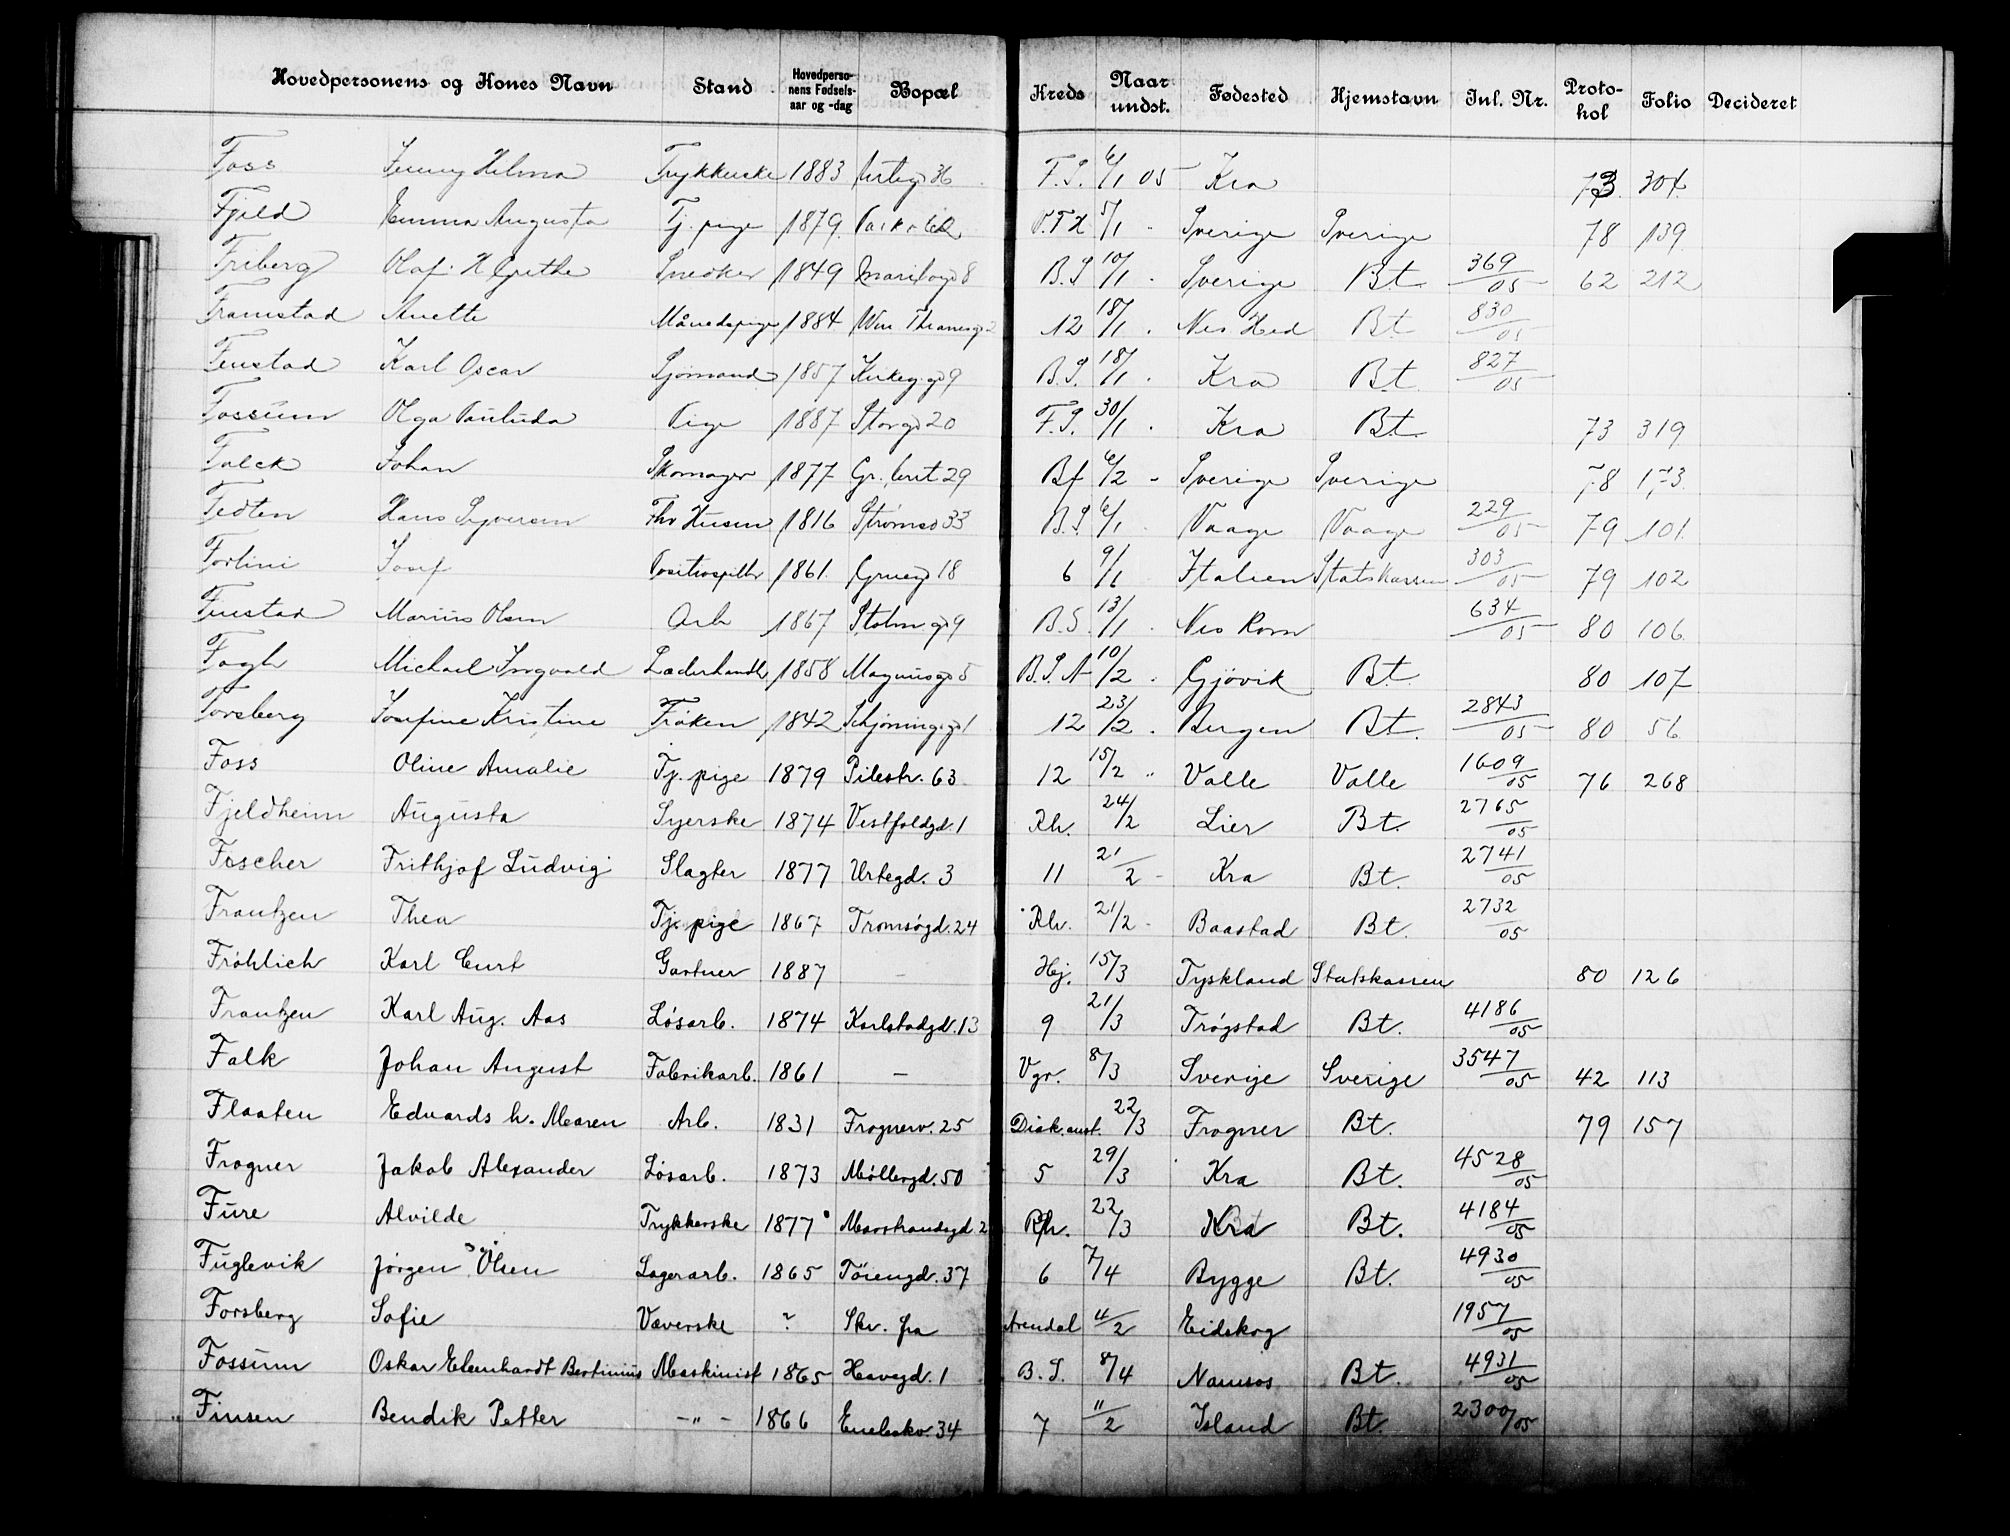 Hovedpersonens og Kones Navn Stand Hovedpersonens Fødselsaar og -dag Bopæl Kreds Naar undst. Fødested Hjemstavn Inl. Nr. Protohol Folio Decideret
Foss Jenny Helma Trykkerske 1883 Urtegd 36 F.S. 6/1 05 Kra 73 304
Fjeld Emma Augusta Tj. pige 1879 5/1 Sverige Sverige 78 139
Friberg Olaf Snedker 1849 Maribogd 8 B.S 10/1 Sverige Bt. 369/05 62 212
Framstad Anette Månedspige 1884 Wm Thranesgd 2 12 18/1 Nes Hed Bt 830/05
Fenstad Karl Oscar Sjömand 1857 Kirkeg.gd 9 B.S. 18/1 Kra Bt. 827/05
Fossum Olga Pauluda Pige 1887 Storgd 20 F.S. 30/1 Kra Bt. 73 319
Falck Johan Skomager 1877 Gr. 29 Bf 6/2 Sverige Sverige 78 173
Tedten Hans Syversen Fhv Husm 1816 Strømsv 33 B.S 6/1 Vaage Vaage 229/05 79 101
Forlini Josef Positivspiller 1861 Gruegd 18 6 9/1 Italien Statskassen 303/05 79 102
Fenstad Marius Olsen Arb 1867 Stolm gd 9 B.S. 13/1 Nes Rom 634/05 80 106
Fagh Michael Ingvald Læderhandl. 1858 Magnusgd 5 B.S.N 10/2 Gjövik Bt. 80 107
Forsberg Josefine Kristine Fröken 1842 Schjøningsgd 1 12 23/2 Bergen Bt. 2843/05 80 56
Foss Oline Amalie Tj. pige 1879 Pilestr. 63 12 15/2 " Valle Valle 1609/05 76 268
Fjeldheim Augusta Syerske 1874 Vestfoldgd. 1 Rh. 24/2 Lier Bt. 2765/05
Fischer Frithjof Ludvig Slagter 1877 Urtegd. 3 11 21/2 - Kra Bt. 2741/05
Frantzen Thea Tj. pige 1867 Tromsøgd. 24 Rh. 21/2 - Baastad Bt. 2732/05
Fröhlich Karl Curt Gartner 1887 - Hj. 15/3 Tyskland Statskassen 80 126
Frantzen Karl Aug. Aas Løsarb. 1874 Karlstadgd. 13 9 21/3 Trøgstad Bt. 4186/05
Falk Johan August Fabrikarb. 1861 - Vgr. 8/3 Sverige Sverige 3547/05 42 113
Flaaten Edvards h. Maren Arb. 1831 Frognerv. 25 Diak. anst. 22/3 Frogner Bt. 79 157
Frogner Jakob Alexander Løsarb. 1873 Møllergd. 50 5 29/3 Kra Bt. 4528/05
Fure Alvilde Trykkerske 1877 Marstrandsgd 2 Rh. 22/3 Kra Bt. 4184/05
Fuglevik Jørgen Olsen Lagerarb. 1865 Töiengd. 37 6 7/4 Rygge Bt. 4930/05
Forsberg Sofie Væverske ? Skr. fra Arendal 4/2 Eidskog 1957/05
Fossum Oskar Elenhardt Bertinius Maskinist 1865 Havegd. 1 B.S. 8/4 Namsos Bt. 4931/05
Finsen Bendik Petter - " - 1866 Enebakv. 34 7 11/2 Island Bt. 2300/05